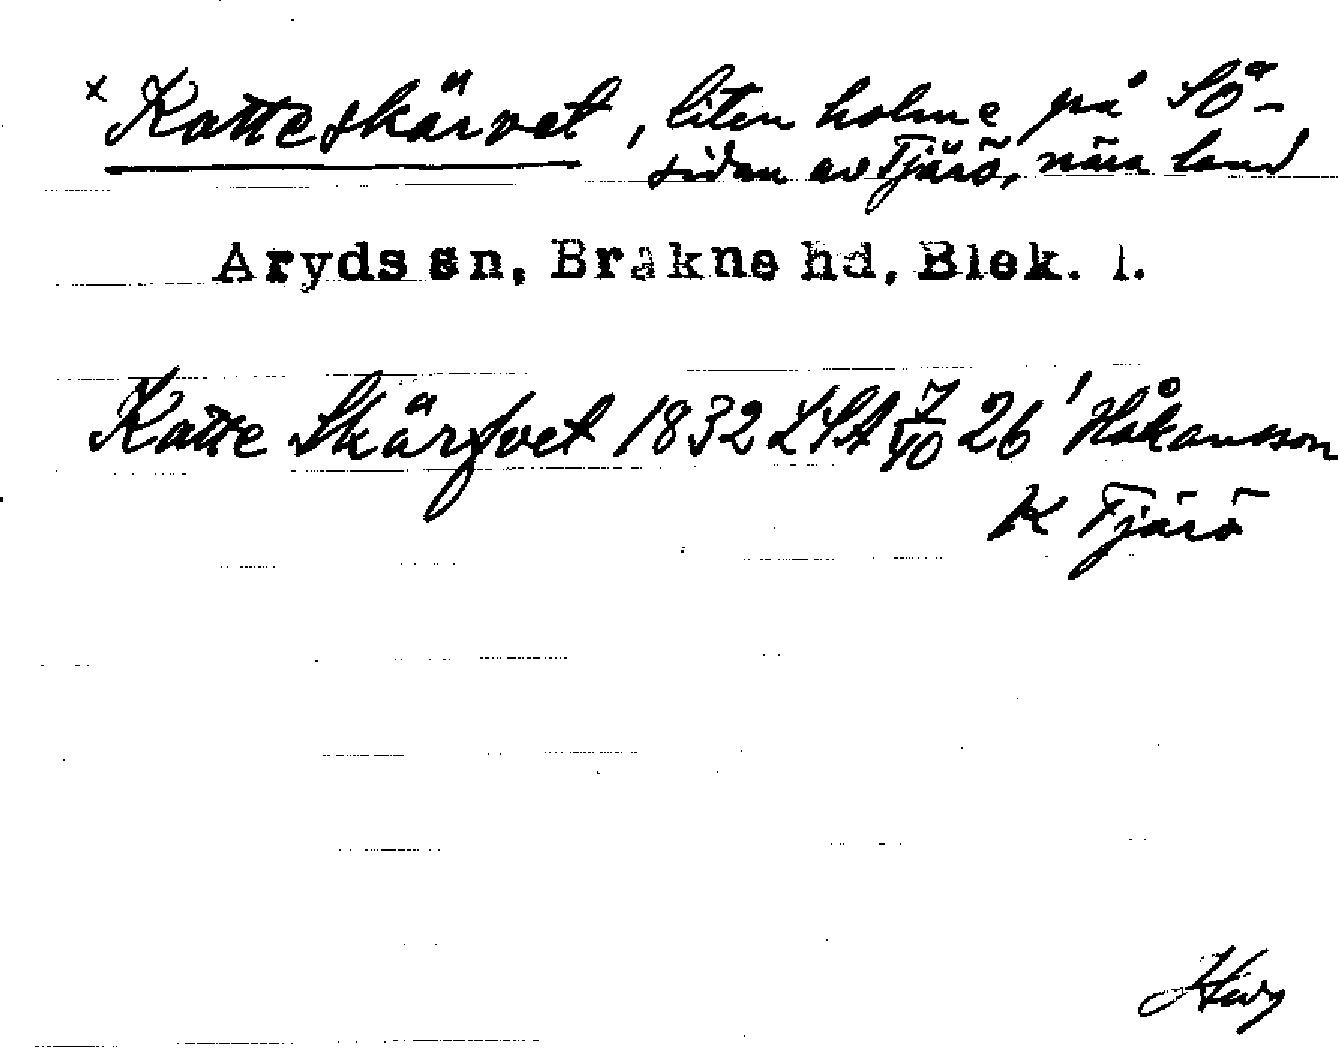 x Katteskärvet, liten holme på SÖ-
sidan av Tjärö, nära land
Aryds sn, Bräkne hd, Blek. l.
Katte Skärfvet 1832 LSA 7/10 26 Håkansson
K Tjärö